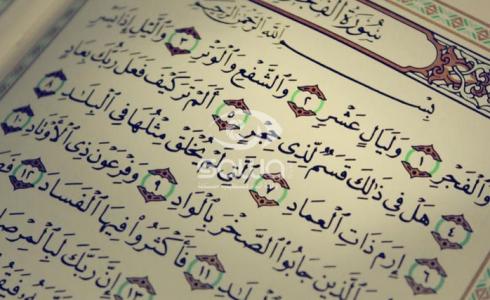 سُورَةُ الفَجْرِ
بِسْمِ ٱللَّهِ ٱلرَّحْمَٰنِ ٱلرَّحِيمِ
وَٱلْفَجْرِ ١ وَلَيَالٍ عَشْرٍ ٢ وَٱلشَّفْعِ وَٱلْوَتْرِ ٣ وَٱلَّيْلِ إِذَا يَسْرِ
٤ هَلْ فِى ذَٰلِكَ قَسَمٌ لِّذِى حِجْرٍ ٥ أَلَمْ تَرَ كَيْفَ فَعَلَ رَبُّكَ بِعَادٍ
٦ إِرَمَ ذَاتِ ٱلْعِمَادِ ٧ ٱلَّتِى لَمْ يُخْلَقْ مِثْلُهَا فِى ٱلْبِلَٰدِ ٨
ٱلَّذِينَ جَابُوا۟ ٱلصَّخْرَ بِٱلْوَادِ ٩ وَفِرْعَوْنَ ذِى ٱلْأَوْتَادِ ١٠
١١ فَأَكْثَرُوا۟ فِيهَا ٱلْفَسَادَ ١٢
١٣ إِنَّ رَبَّكَ لَبِٱلْمِرْصَادِ